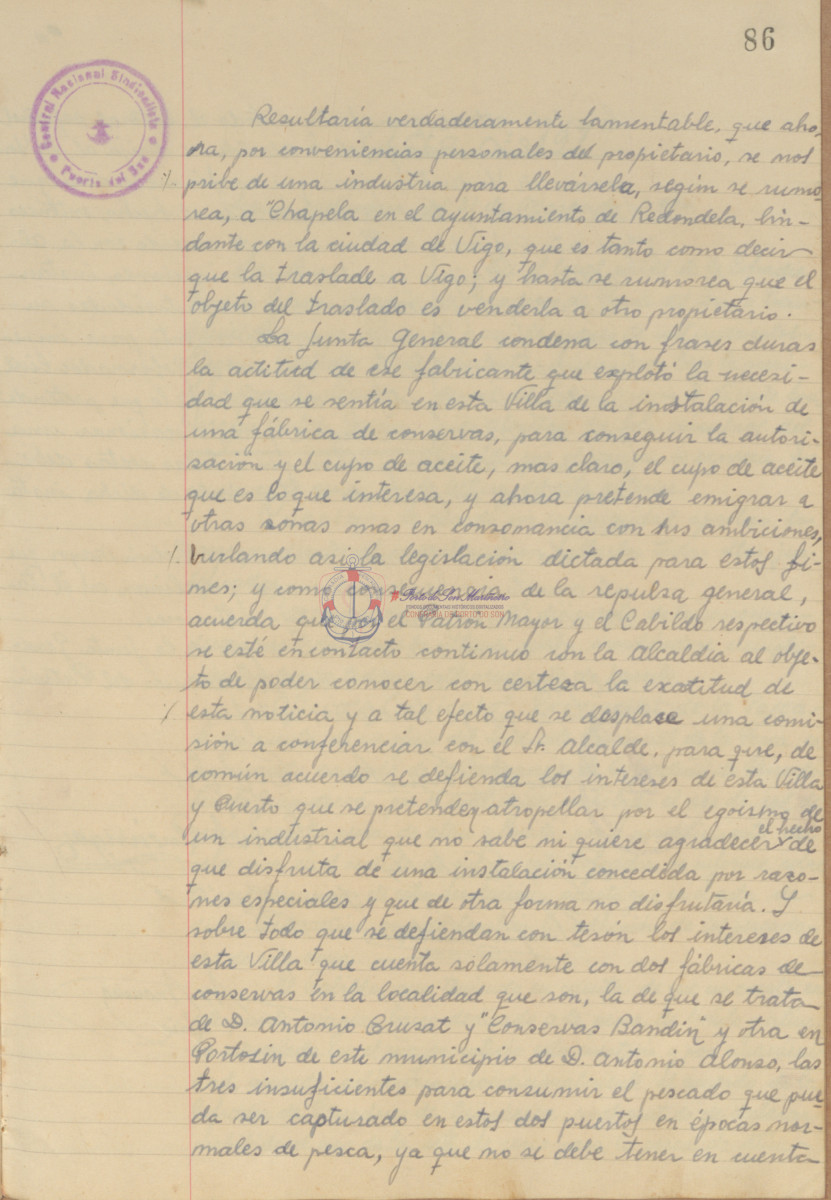 86
Central Nacional Sindicalista
Puerto del Son
Resultaría verdaderamente lamentable, que aho-
ra, por conveniencias personales del propietario, se nos
pribe de una industria para llevársela, según se rumo-
rea, a "Chapela en el Ayuntamiento de Redondela, lin-
dante con la ciudad de Vigo, que es tanto como decir
que la traslade a Vigo; y hasta se rumorea que el
objeto del traslado es venderla a otro propietario.
La Junta General condena con frases duras
la actitud de ese fabricante que explotó la necesi-
dad que se sentía en esta Villa de la instalación de
una fábrica de conservas, para conseguir la autori-
sación y el cupo de aceite, mas claro, el cupo de aceite
que es lo que interesa, y ahora pretende emigrar a
otras zonas mas en consonancia con sus ambiciones,
burlando asi la legislación dictada para estos fi-
nes; y como consecuencia de la repulsa general,
acuerda que por el Patrón Mayor y el Cabildo respectivo
se esté en contacto continuo con la Alcaldia al obje-
to de poder conocer con certeza la exatitud de
esta noticia y a tal efecto que se desplace una comi-
sión a conferenciar con el Sr. Alcalde, para que, de
común acuerdo se defienda los intereses de esta Villa
y Puerto que se pretenden atropellar por el egoismo de
un industrial que no sabe ni quiere agradecer el hecho de
que disfruta de una instalación concedida por razo-
nes especiales y que de otra forma no disfrutaría. Y
sobre todo que se defiendan con tesón los intereses de
esta Villa que cuenta solamente con dos fábricas de
conservas en la localidad que son, la de que se trata
de D. Antonio Crusat y "Conservas Bandin" y otra en
Portosin de este municipio de D. Antonio Alonso, las
tres insuficientes para consumir el pescado que pue-
da ser capturado en estos dos puertos en épocas nor-
males de pesca, ya que no se debe tener en cuenta